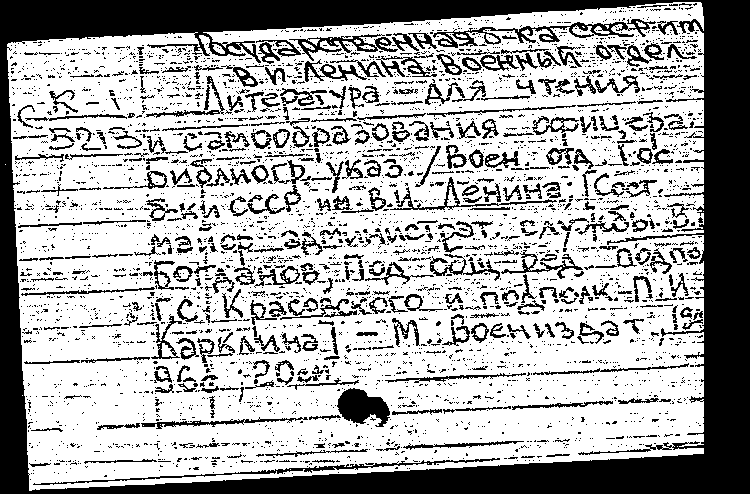 Государственная б-ка СССР им
В.И. Ленина. Военный отдел.
К-1 Литература для чтения
5213 и самообразования офицера:
Библиогр. указ. / Воен. отд. Гос.
б-ки СССР им. В.И. Ленина; [Сост.
майор администрат. службы В.
Богданов; Под общ. ред. подпо
Г.С. Красовского и подполк. П.И.
Карклина]. – М.: Воениздат,
96с; 20см.